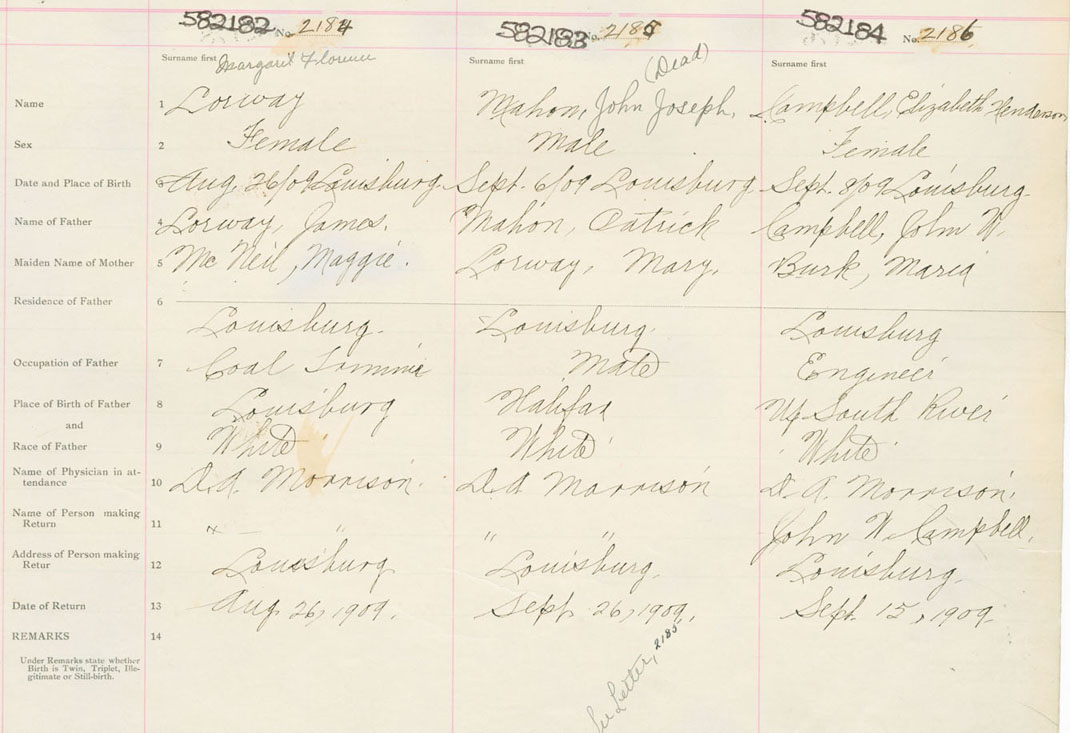 582182 No. 2184 582183 No. 2185 582184 No. 2186
Surname first Margaret Florence Surname first (Dead) Surname first
Name 1 Lorway Mahon, John Joseph, Campbell, Elizabeth Henderson
Sex 2 Female Male Female
Date and Place of Birth 3 Aug. 26/09 Louisburg. Sept. 6/09 Louisburg Sept. 8/09 Louisburg.
Name of Father 4 Lorway, James. Mahon, Patrick Campbell, John W.
Maiden Name of Mother 5 Mc Neil, Maggie. Lorway, Mary, Burk, Maria
Residence of Father 6
Louisburg. Louisburg. Louisburg
Occupation of Father 7 Coal Mate Engineer
Place of Birth of Father 8 Louisburg Halifax South River
and
Race of Father 9 White White White
Name of Physician in at-
tendance 10 D. A. Morrison. D. A. Morrison D. A. Morrison.
Name of Person making
Return 11 " " " John W. Campbell.
Address of Person making
Retur 12 Louisburg Louisburg. Louisburg.
Date of Return 13 Aug. 26, 1909. Sept. 26, 1909. Sept. 15, 1909.
REMARKS 14
Under Remarks state whether
Birth is Twin, Triplet, Ille-
gitimate or Still-birth.
See Letter, 2185